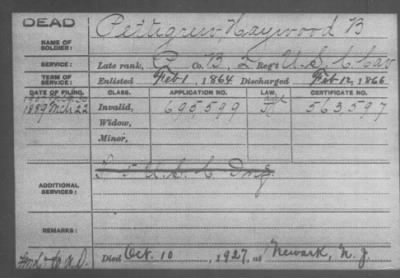 DEAD
NAME OF SOLDIER: Pettigrew Haywood B
SERVICE: Late rank, P Co. B, 2 Reg't U.S.C. Cav
TERM OF SERVICE: Enlisted Feb 1, 1864 Discharged Feb 12, 1866
DATE OF FILING. CLASS. APPLICATION NO. LAW. CERTIFICATE NO.
1889 Mch 22 Invalid, 695,599 563,597
Widow,
Minor,
ADDITIONAL SERVICES: U.S.C.
REMARKS:
Died Oct. 10, 1927, at Newark, N.J.